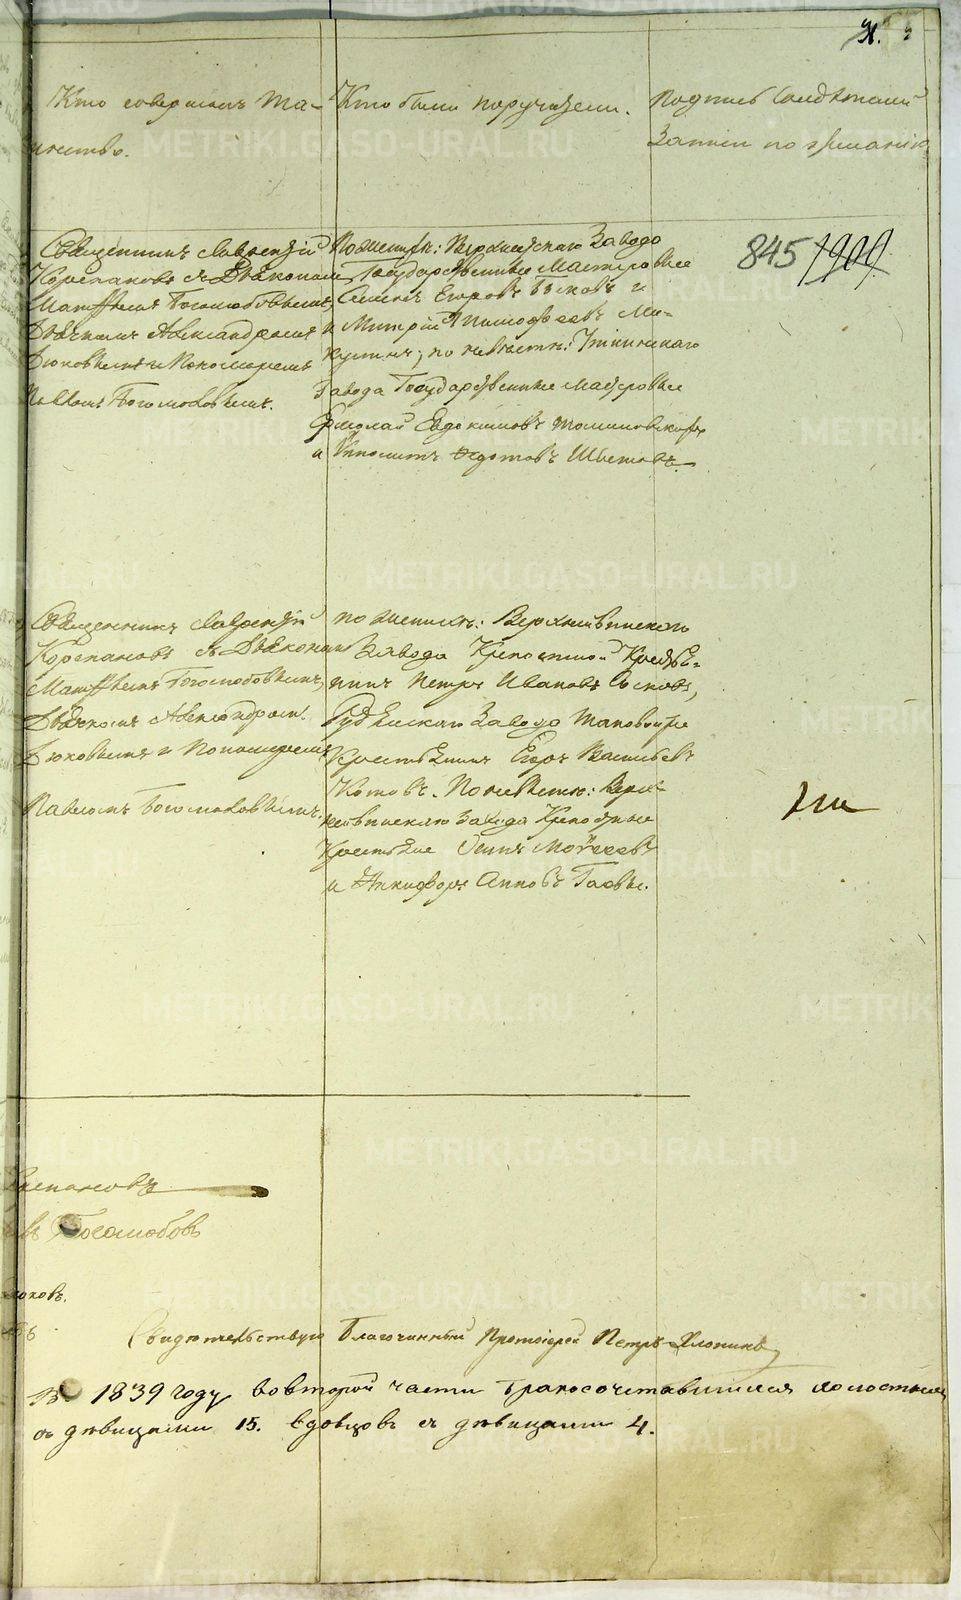 Кто совершалъ Та-
инство.
Кто были поручители.
Подпись свидѣтелей
записи по желанію
Священникъ Лаврентій
Корепановъ съ Дьякономъ
Матѳеемъ Боголюбовымъ,
Дьячкомъ Александромъ
Дюковымъ и Пономаремъ
Павломъ Богомоловымъ.
По женихѣ: Верхнейвинскаго Завода
Государственные Мастеровые
Семенъ Егоровъ и
Митрій Тимофеевъ Ми-
кулинъ; по невѣстѣ: Уткинскаго
Завода Государственные мастеровые
Ермолай Евдокимовъ
и Ипполитъ Федотовъ
845 1900
Священникъ Лаврентій
Корепановъ съ Дьякономъ
Матѳеемъ Боголюбовымъ,
Дьячкомъ Александром.
Дюковымъ и Пономаремъ
Павломъ Богомоловымъ.
по женихѣ: Верхнейвинскаго
Завода Крепостной Крестья-
нинъ Петръ Ивановъ
Рудянскаго Завода таковой же
Крестьянинъ Егоръ Васильевъ
Котовъ. По невѣстѣ: Верх-
нейвинскаго Завода Крепостные
Крестьяне Осипъ Мойсеевъ
и Никифоръ
Боголюбовъ
Свидѣтельствую Благочинный Протоіерей Петръ Хлопинъ
В 1839 году во второй части бракосочетавшихся холостыхъ
съ дѣвицами 15. вдовцовъ съ дѣвицами 4.